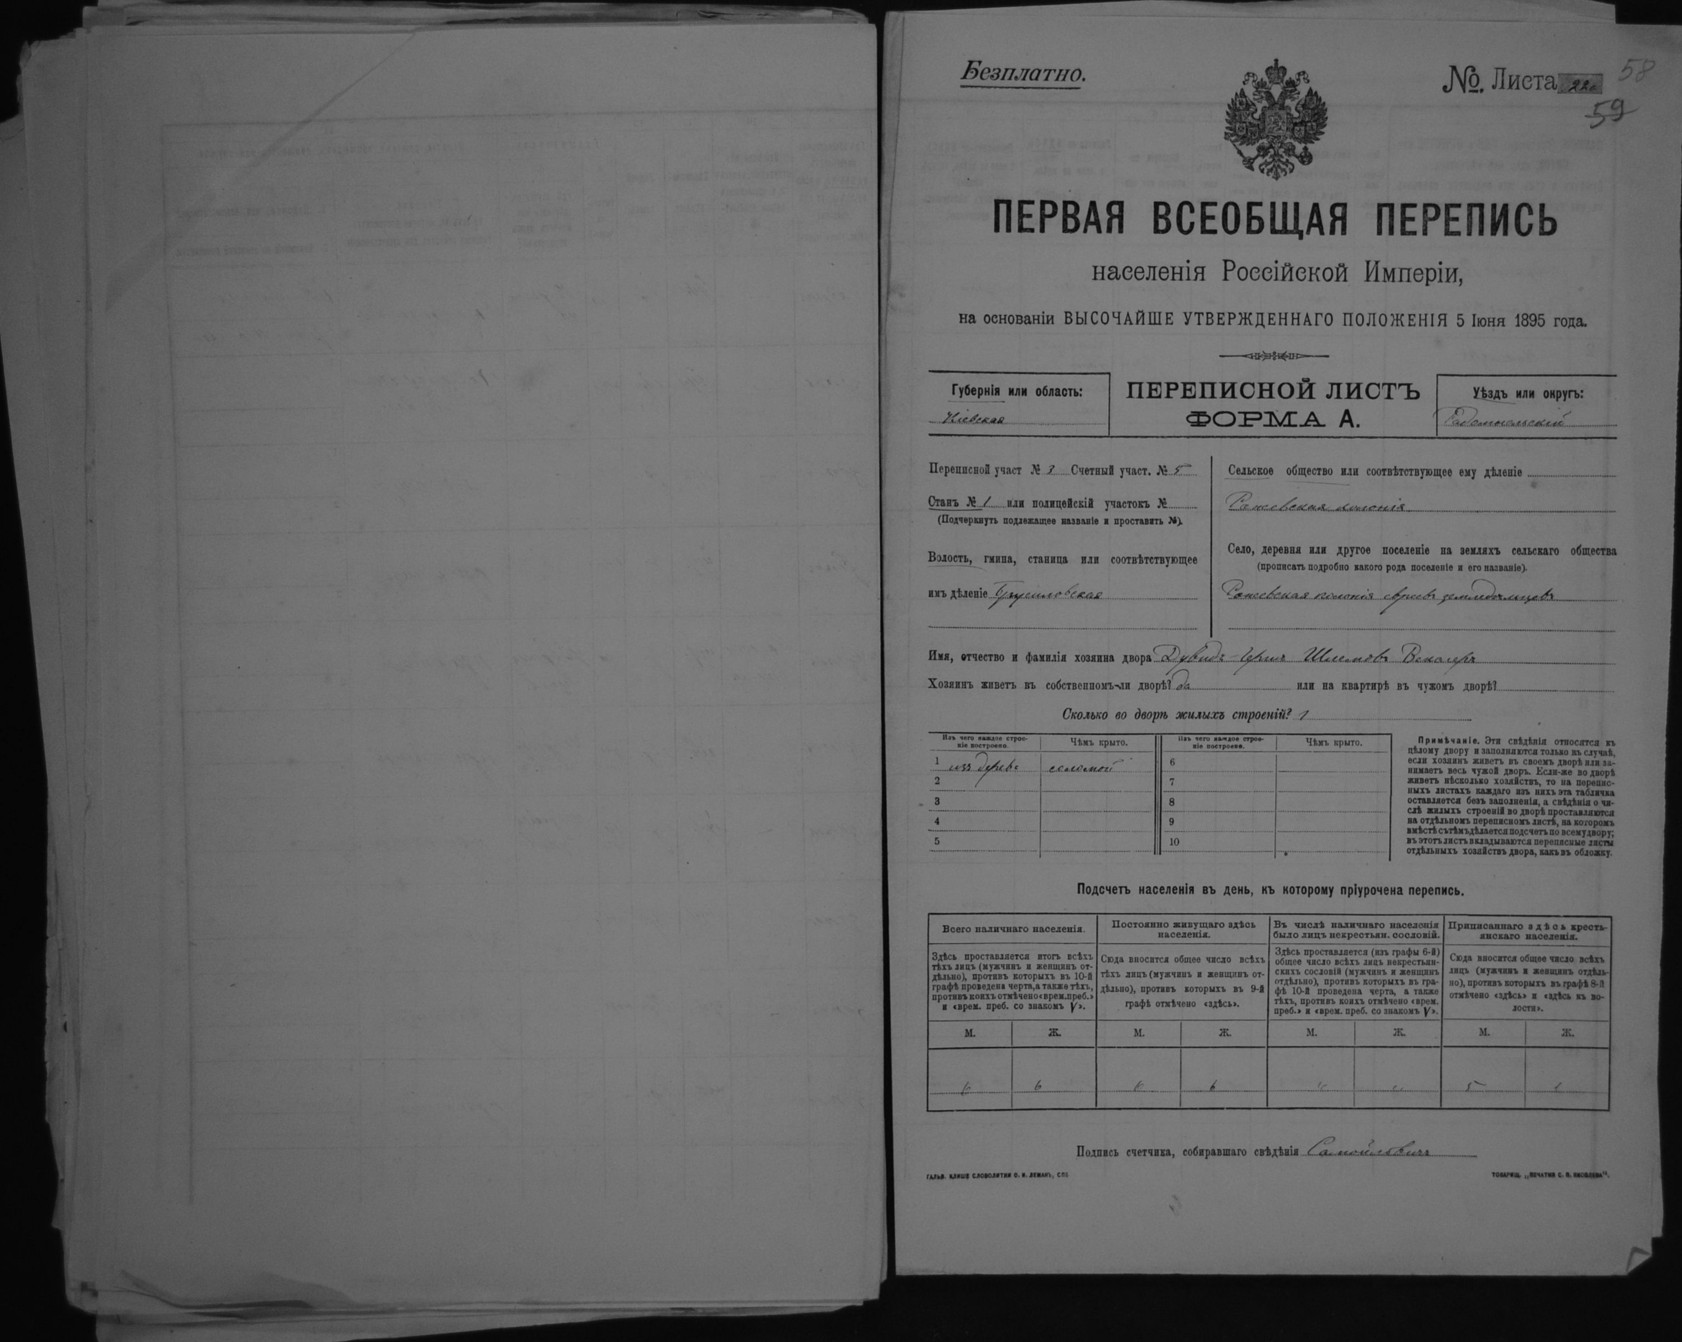 Безплатно.
№. Листа 22
58
59
ПЕРВАЯ ВСЕОБЩАЯ ПЕРЕПИСЬ
населенія Россійской Имперіи,
на основаніи ВЫСОЧАЙШЕ УТВЕРЖДЕННАГО ПОЛОЖЕНІЯ 5 Іюня 1895 года.
Губернія или область:
Кіевская
ПЕРЕПИСНОЙ ЛИСТЪ
ФОРМА А.
Уѣздъ или округъ:
Радомысльскій
Переписной участ № 3 Счетный участ. № 5
Станъ № 1 или полицейскій участокъ №
(Подчеркнуть подлежащее названіе и проставить №).
Волость, гмина, станица или соотвѣтствующее
имъ дѣленіе Брусиловская
Сельское общество или соотвѣтствующее ему дѣленіе
Рожевская колонія
Село, деревня или другое поселеніе на земляхъ сельскаго общества
(прописать подробно какого рода поселеніе и его названіе).
Рожевская колонія евреевъ земледѣльцевъ
Имя, отчество и фамилія хозяина двора Дувидъ Гершъ Шлемовъ
Хозяинъ живетъ въ собственномъ-ли дворѣ? да или на квартирѣ въ чужомъ дворѣ?
Сколько во дворѣ жилыхъ строеній? 1
Изъ чего каждое строе-
ніе построено.
Чѣмъ крыто.
Изъ чего каждое строе-
ніе построено.
Чѣмъ крыто.
1 изъ дерева соломой 6
2 7
3 8
4 9
5 10
Примѣчаніе. Эти свѣдѣнія относятся къ
цѣлому двору и заполняются только въ случаѣ,
если хозяинъ живетъ въ своемъ дворѣ или за-
нимаетъ весь чужой дворъ. Если-же во дворѣ
живетъ нѣсколько хозяйствъ, то на перепис-
ныхъ листахъ каждаго изъ нихъ эта табличка
оставляется безъ заполненія, а свѣдѣнія о чи-
слѣ жилыхъ строеній во дворѣ проставляются
на отдѣльномъ переписномъ листѣ, на которомъ
вмѣстѣ съ тѣмъ дѣлается подсчетъ по всему двору;
въ этотъ листъ вкладываются переписные листы
отдѣльныхъ хозяйствъ двора, какъ въ обложку.
Подсчетъ населенія въ день, къ которому пріурочена перепись.
Всего наличнаго населенія.
Здѣсь проставляется итогъ всѣхъ
тѣхъ лицъ (мужчинъ и женщинъ от-
дѣльно), противъ которыхъ въ 10-й
графѣ проведена черта, а также тѣхъ,
противъ коихъ отмѣчено «врем. преб.»
и «врем. преб. со знакомъ V».
Постоянно живущаго здѣсь
населенія.
Сюда вносится общее число всѣхъ
тѣхъ лицъ (мужчинъ и женщинъ от-
дѣльно), противъ которыхъ въ 9-й
графѣ отмѣчено «здѣсь».
Въ числѣ наличнаго населенія
было лицъ некрестьян. сословій.
Здѣсь проставляется (изъ графы 6-й)
общее число всѣхъ лицъ некрестьян-
скихъ сословій (мужчинъ и женщинъ
отдѣльно), противъ которыхъ въ гра-
фѣ 10-й проведена черта, а также
тѣхъ, противъ коихъ отмѣчено «врем.
преб.» и «врем. преб. со знакомъ V».
Приписаннаго здѣсь кресть-
янскаго населенія.
Сюда вносится общее число всѣхъ
лицъ (мужчинъ и женщинъ отдѣль-
но), противъ которыхъ въ графѣ 8-й
отмѣчено «здѣсь» и «здѣсь въ во-
лости».
М. Ж. М. Ж. М. Ж. М. Ж.
6 6 6 6 " " 5
Подпись счетчика, собиравшаго свѣдѣнія Самойловичъ
ГАЛЬВ. КЛИШЕ СЛОВОЛИТНИ О. И. ЛЕМАНЪ, СПБ.
ТОВАРИЩ. „ПЕЧАТНЯ С. П. ЯКОВЛЕВА".